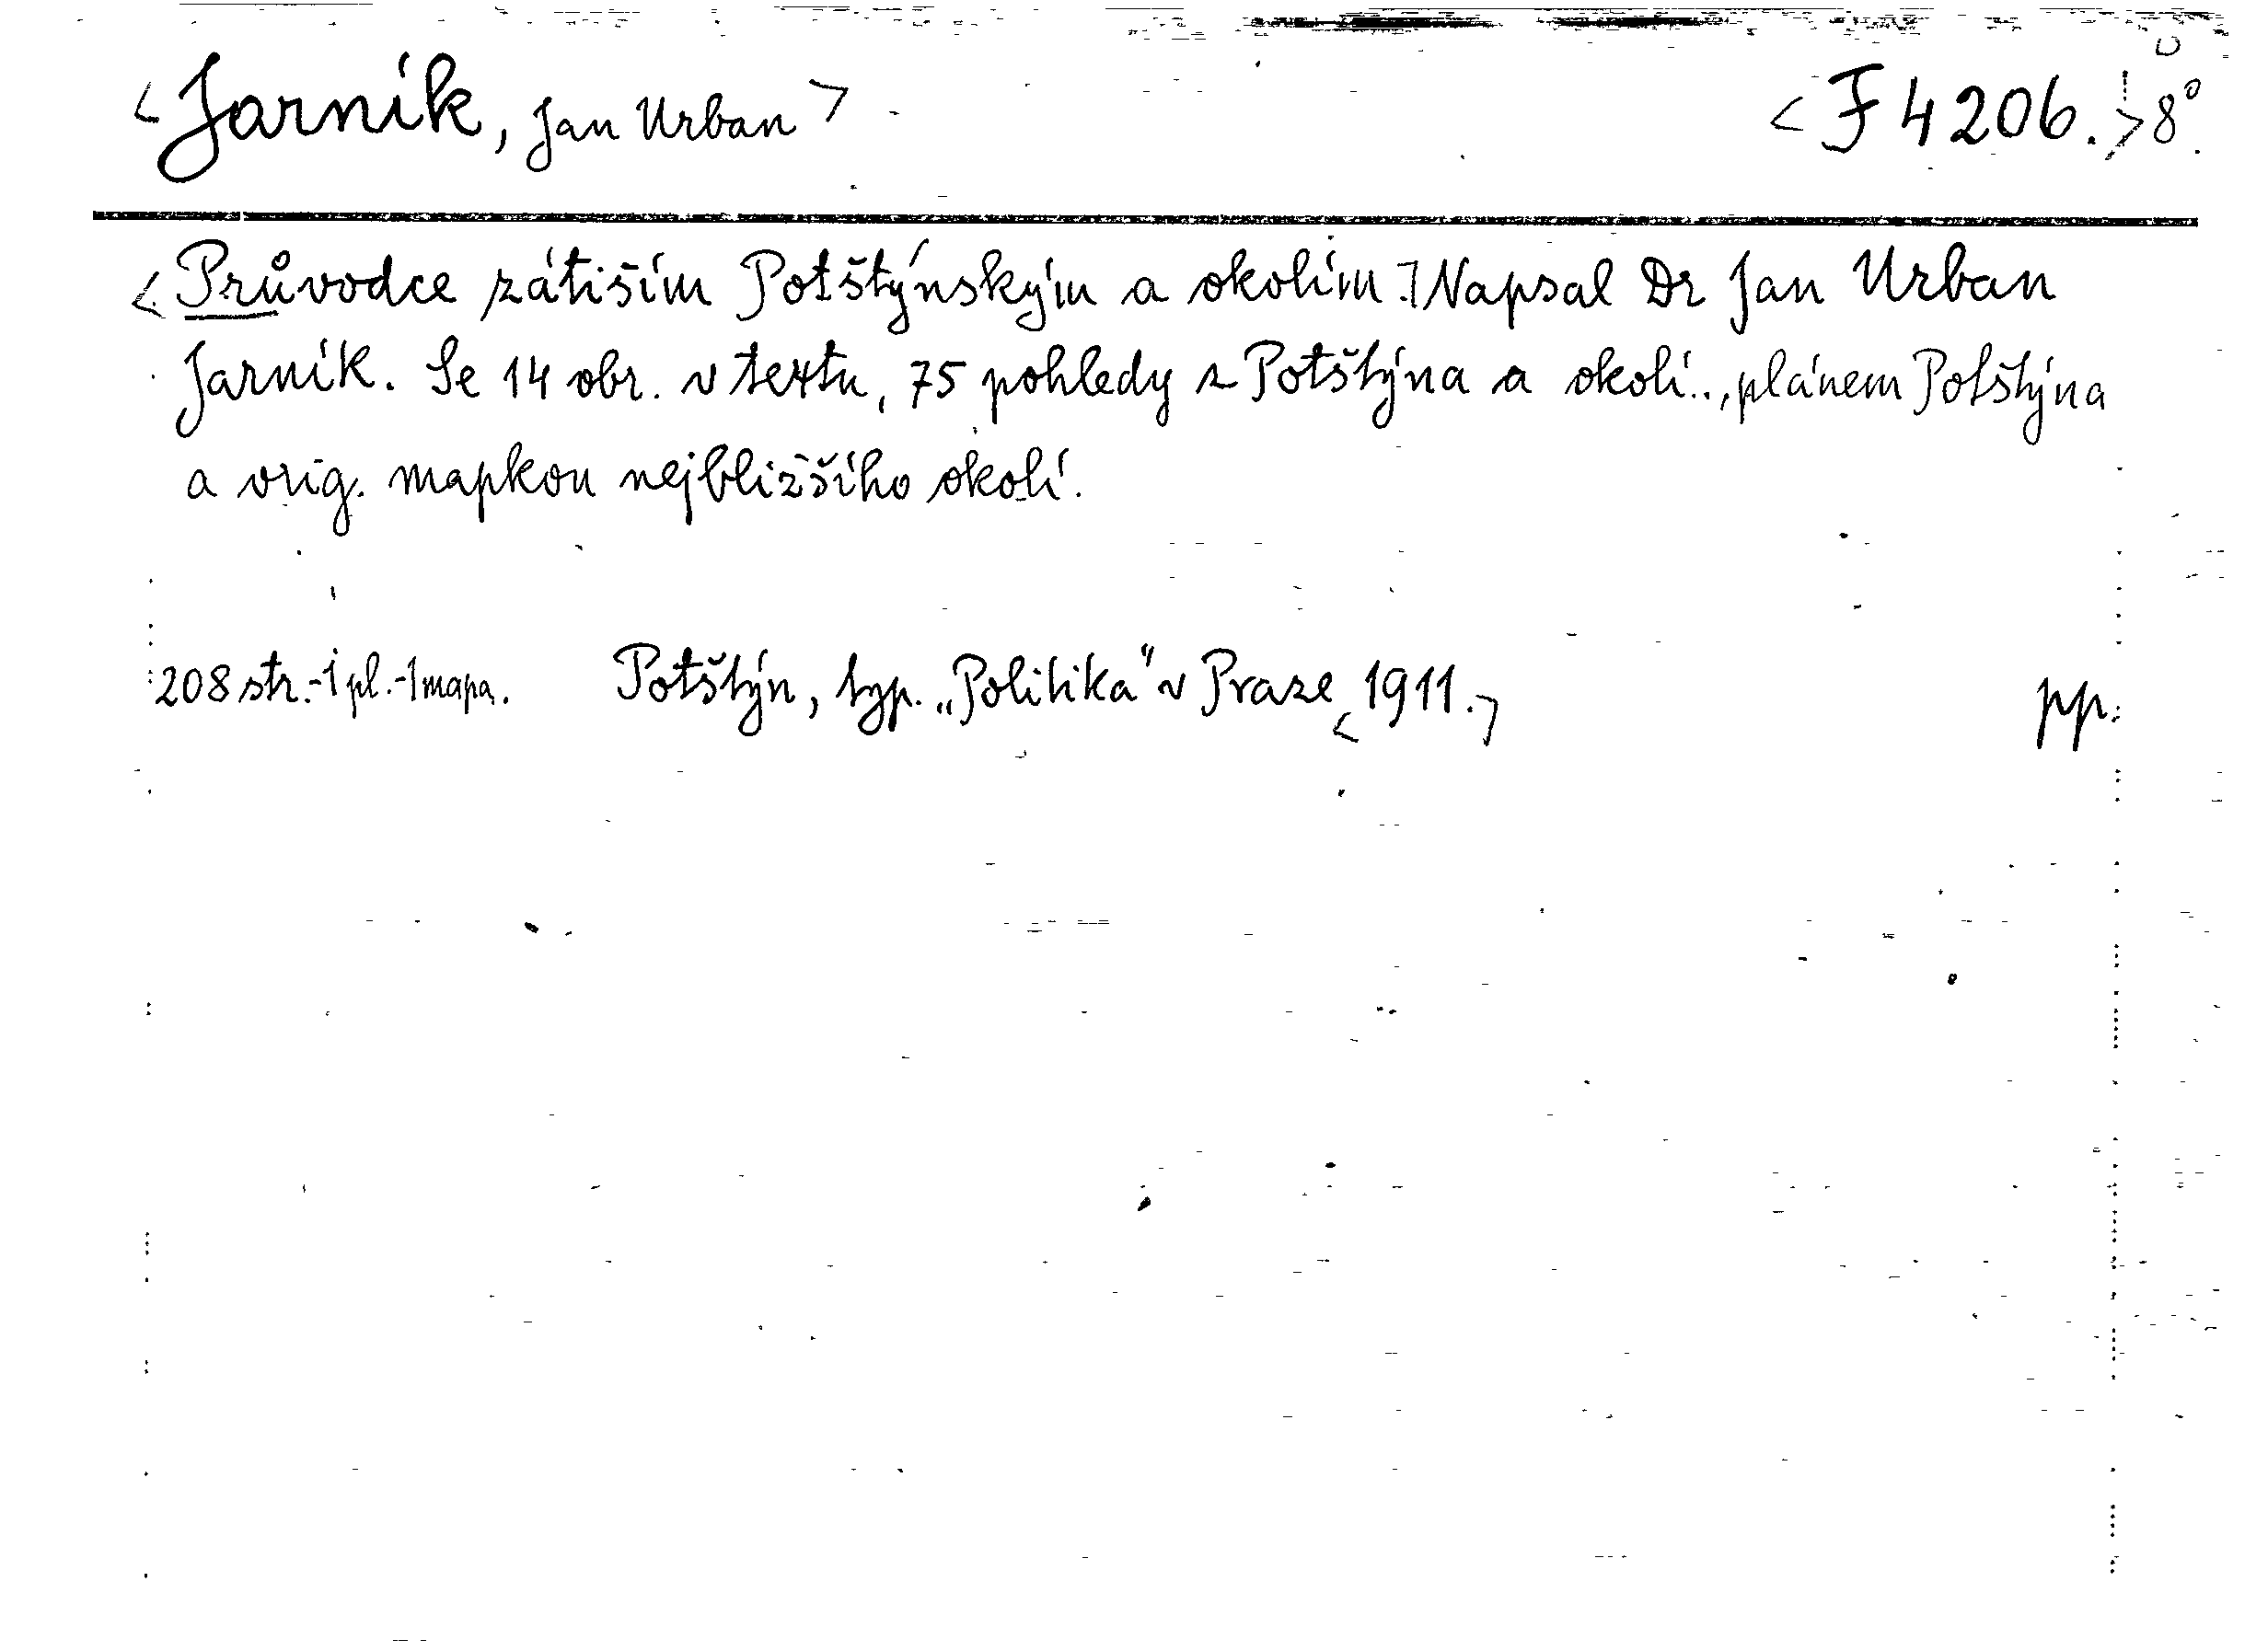 <Jarník, Jan Urban> <F 4206.>8°.
<Průvodce zátiším Potštýnským a okolím.>Napsal Dr Jan Urban
Jarník. Se 14 obr. v textu, 75 pohledy z Potštýna a okolí.., plánem Potštýna
a orig. mapkou nejbližšího okolí.
208 str.-1 pl.-1 mapa. Potštýn, typ. „Politika" v Praze <1911.> pp.